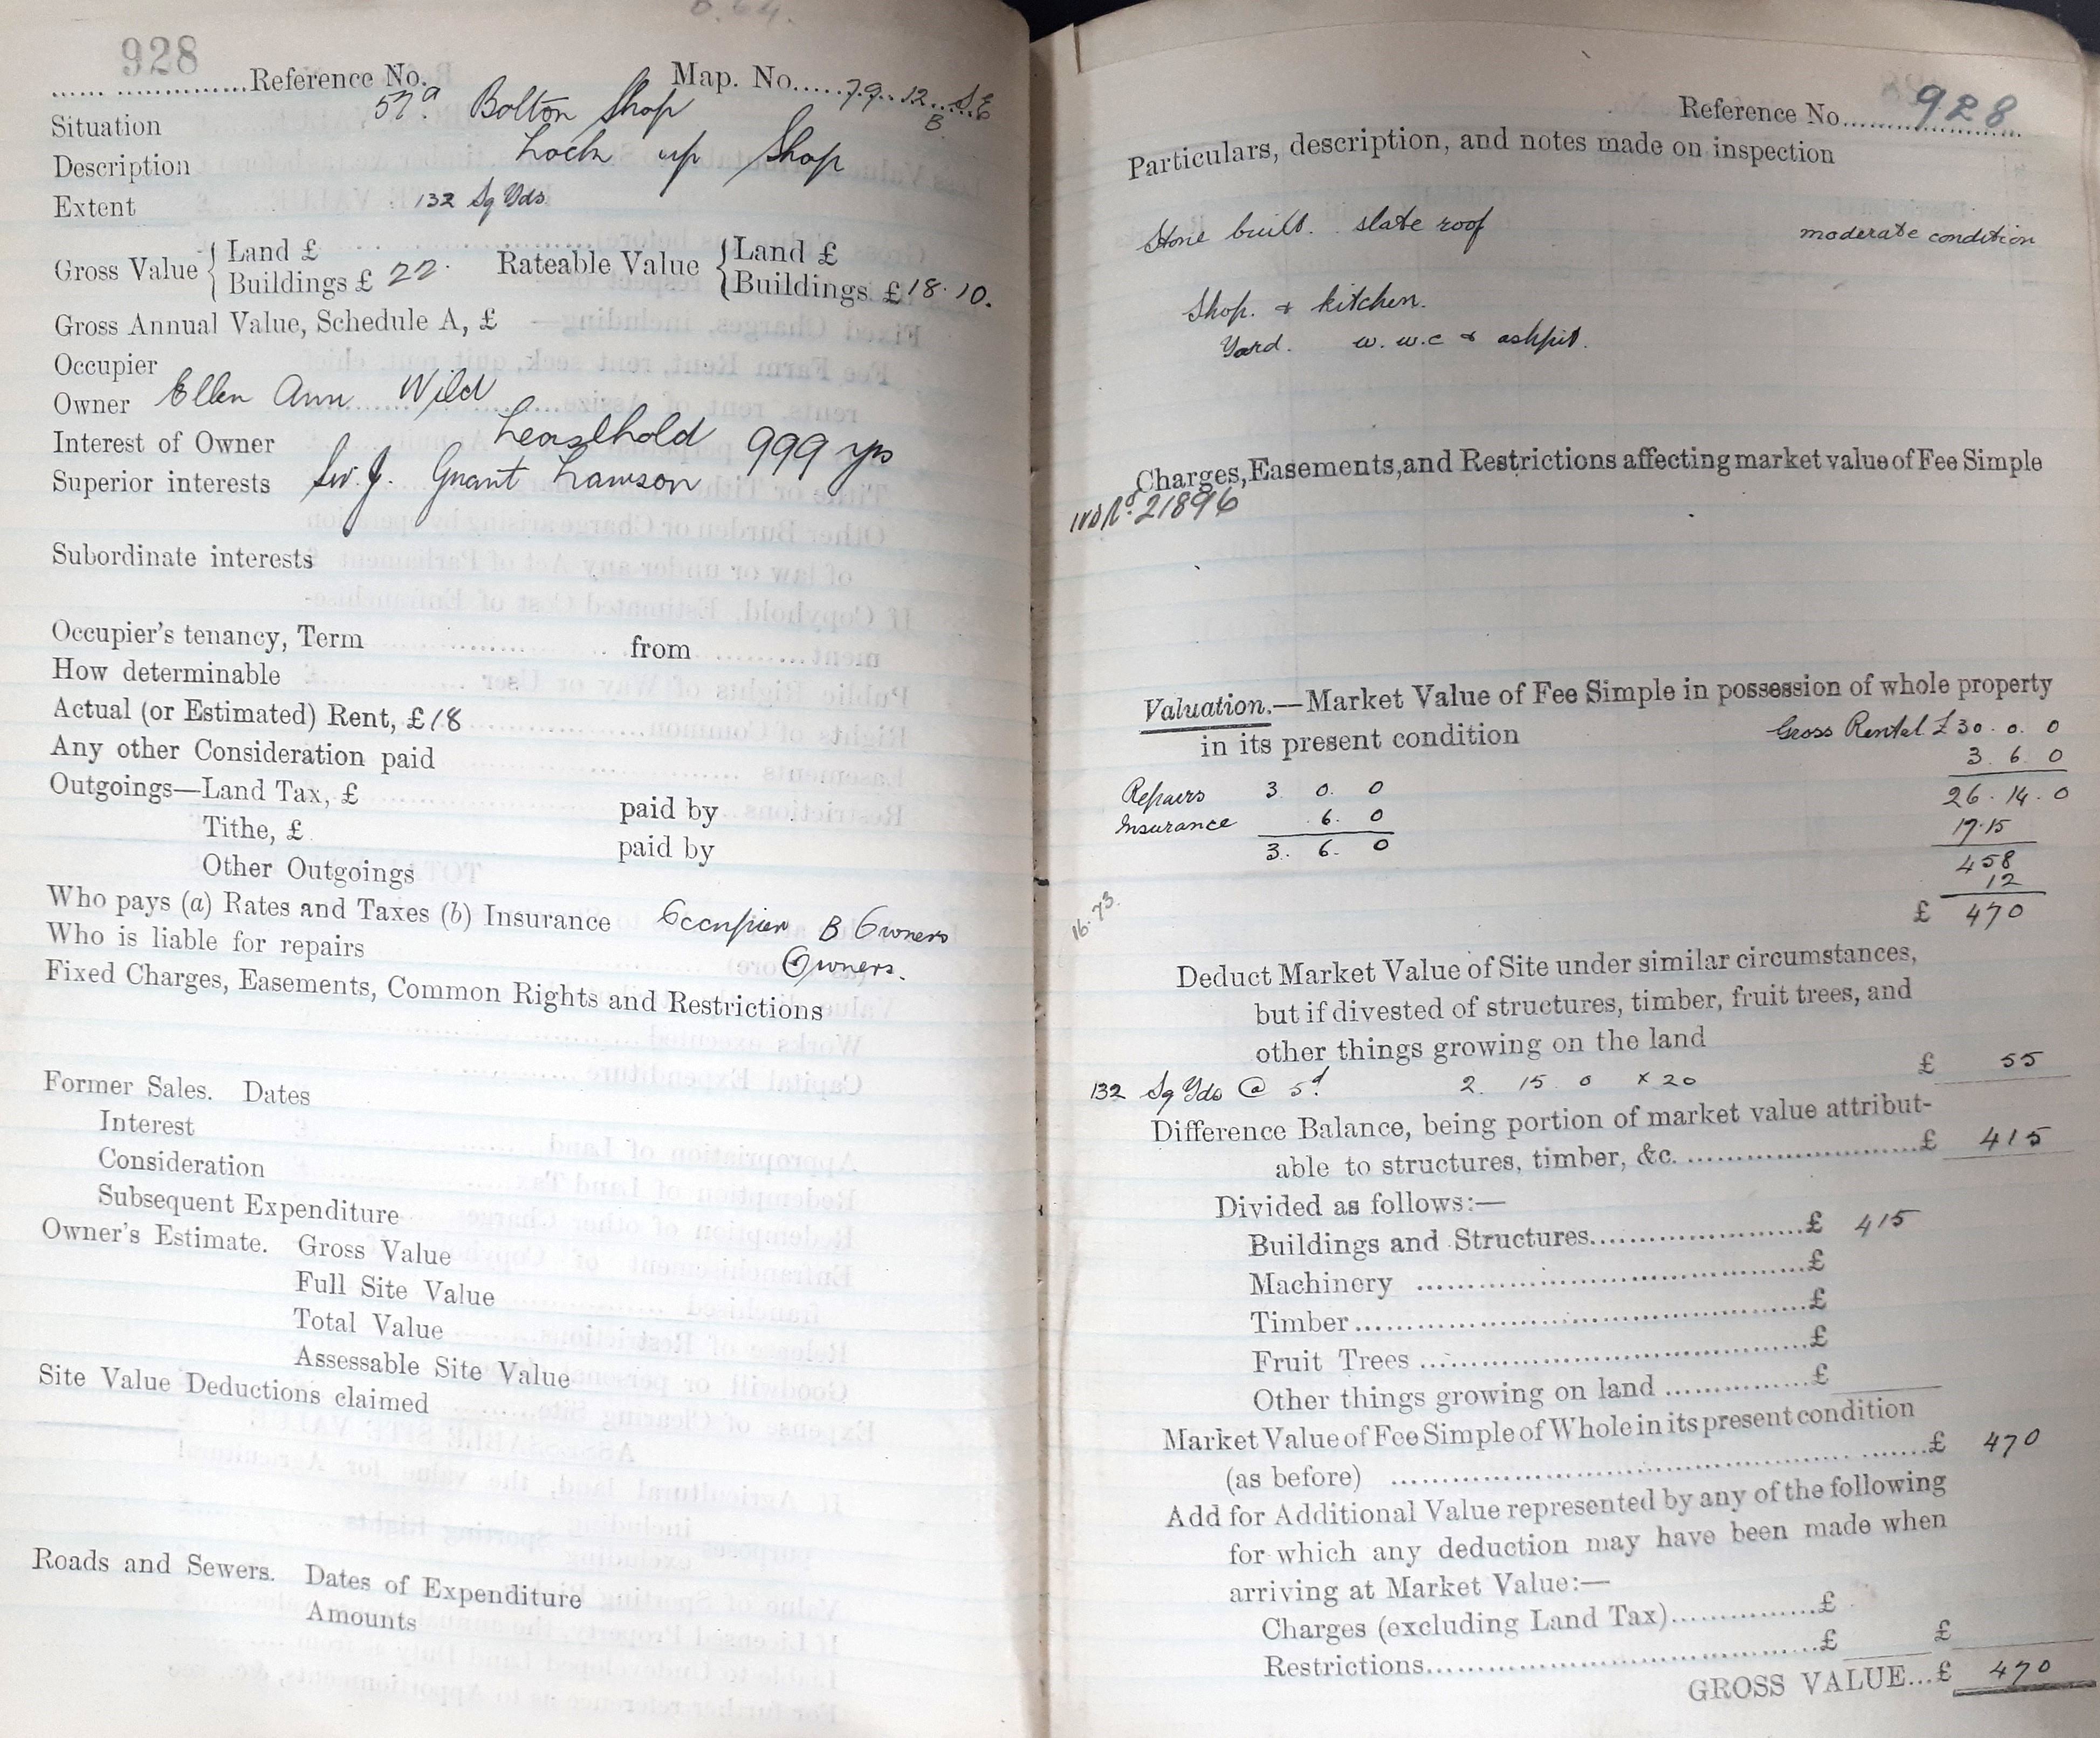 D.64.
928
Reference No. Map. No. 79. 12. S.E
B.
Situation 57a Bolton Shop
Description Lock up Shop
Extent 132 Sq Yds
Gross Value { Land £ Rateable Value { Land £
Buildings £ 22. Buildings £ 18.10.
Gross Annual Value, Schedule A, £
Occupier
Owner Ellen Ann Wild
Interest of Owner Leasehold 999 yrs
Superior interests Sir. J. Grant Lawson
Subordinate interests
Occupier's tenancy, Term from
How determinable
Actual (or Estimated) Rent, £18
Any other Consideration paid
Outgoings—Land Tax, £ paid by
Tithe, £ paid by
Other Outgoings
Who pays (a) Rates and Taxes (b) Insurance Occupier B Owners
Who is liable for repairs Owners.
Fixed Charges, Easements, Common Rights and Restrictions
Former Sales. Dates
Interest
Consideration
Subsequent Expenditure
Owner's Estimate. Gross Value
Full Site Value
Total Value
Assessable Site Value
Site Value Deductions claimed
Roads and Sewers. Dates of Expenditure
Amounts
Reference No. 928
Particulars, description, and notes made on inspection
Stone built. slate roof moderate condition
Shop. & kitchen.
Yard. w. w.c & ashpit.
Charges, Easements, and Restrictions affecting market value of Fee Simple
No. 21896
Valuation.—Market Value of Fee Simple in possession of whole property
in its present condition Gross Rental £ 30. 0. 0
3. 6. 0
Repairs 3. 0. 0 26. 14. 0
Insurance 6. 0 17.15
3. 6. 0 458
12
16.73. £ 470
Deduct Market Value of Site under similar circumstances,
but if divested of structures, timber, fruit trees, and
other things growing on the land
132 Sq Yds @ 5d 2 15 0 x 20 £ 55
Difference Balance, being portion of market value attribut-
able to structures, timber, &c. £ 415
Divided as follows:—
Buildings and Structures £ 415
Machinery £
Timber £
Fruit Trees £
Other things growing on land £
Market Value of Fee Simple of Whole in its present condition
(as before) £ 470
Add for Additional Value represented by any of the following
for which any deduction may have been made when
arriving at Market Value:—
Charges (excluding Land Tax) £
Restrictions £ £
GROSS VALUE...£ 470